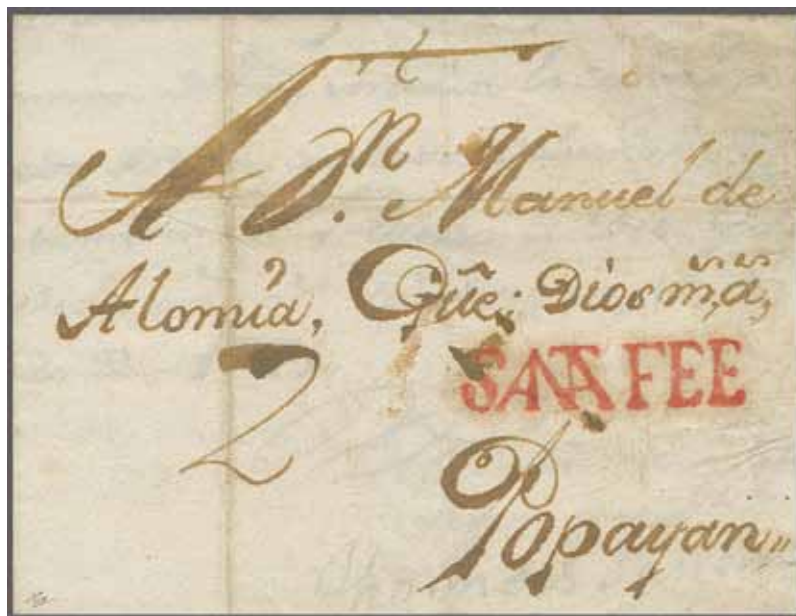 A Dⁿ. Manuel de
Alomía, Gũe. Dios mˢ. aˢ.
2
SANTA FEE
Popayan